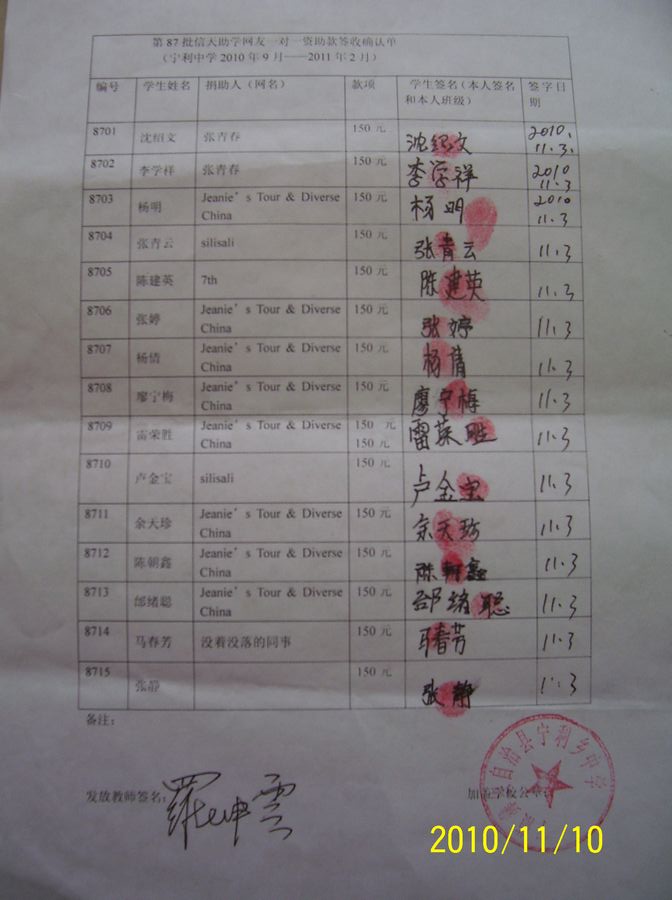 第87批信天助学网友一对一资助款签收确认单
（宁利中学2010年9月——2011年2月）
编号 学生姓名 捐助人（网名） 款项 学生签名（本人签名和本人班级） 签字日期
8701 沈绍文 张青春 150元 沈绍文 2010.11.3.
8702 李学样 张青春 150元 李学祥 2010 11.3
8703 杨明 Jeanie's Tour & Diverse China 150元 杨明 2010 11.3
8704 张青云 silisali 150元 张青云 11.3
8705 陈建英 7th 150元 陈建英 11.3
8706 张婷 Jeanie's Tour & Diverse China 150元 张婷 11.3
8707 杨倩 Jeanie's Tour & Diverse China 150元 杨倩 11.3
8708 廖宁梅 Jeanie's Tour & Diverse China 150元 廖宁梅 11.3
8709 雷荣胜 Jeanie's Tour & Diverse China 150元 150元 雷荣胜 11.3
8710 卢金宝 silisali 150元 卢金宝 11.3
8711 余天珍 Jeanie's Tour & Diverse China 150元 余天珍 11.3
8712 陈朝鑫 Jeanie's Tour & Diverse China 150元 陈朝鑫 11.3
8713 邰绪聪 Jeanie's Tour & Diverse China 150元 邰绪聪 11.3
8714 马春芳 没着没落的同事 150元 马春芳 11.3
8715 张静 150元 张静 11.3
备注：
发放教师签名： 羅坤雲
加盖学校公章：
自治县宁利乡中学
2010/11/10